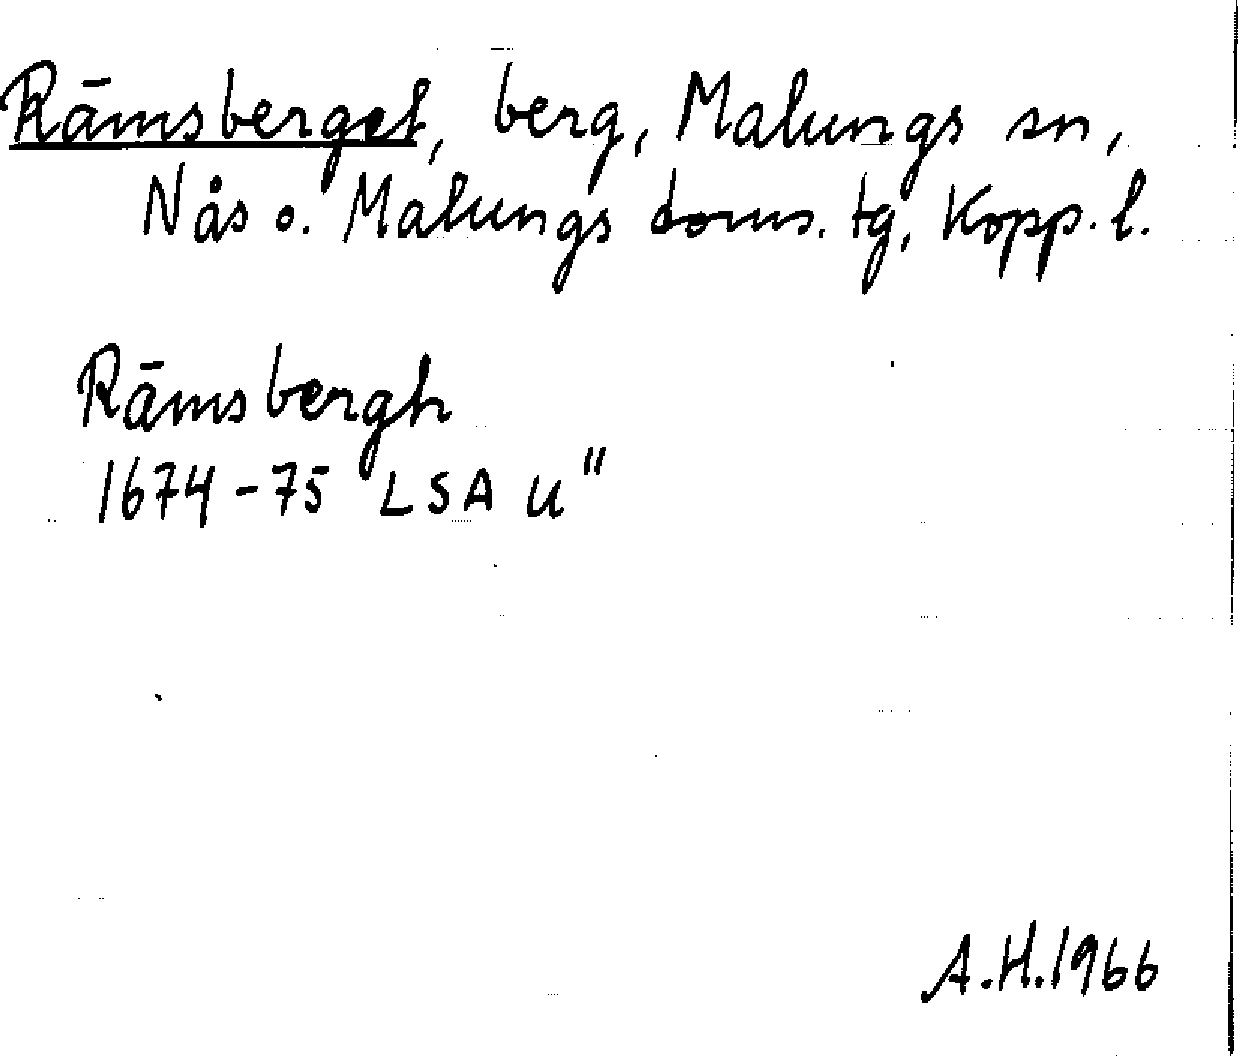 Rämsberget, berg, Malungs sn,
Nås o. Malungs doms. tg, Kopp. l.
Rämsbergh
1674-75 LSA U"
A.H.1966